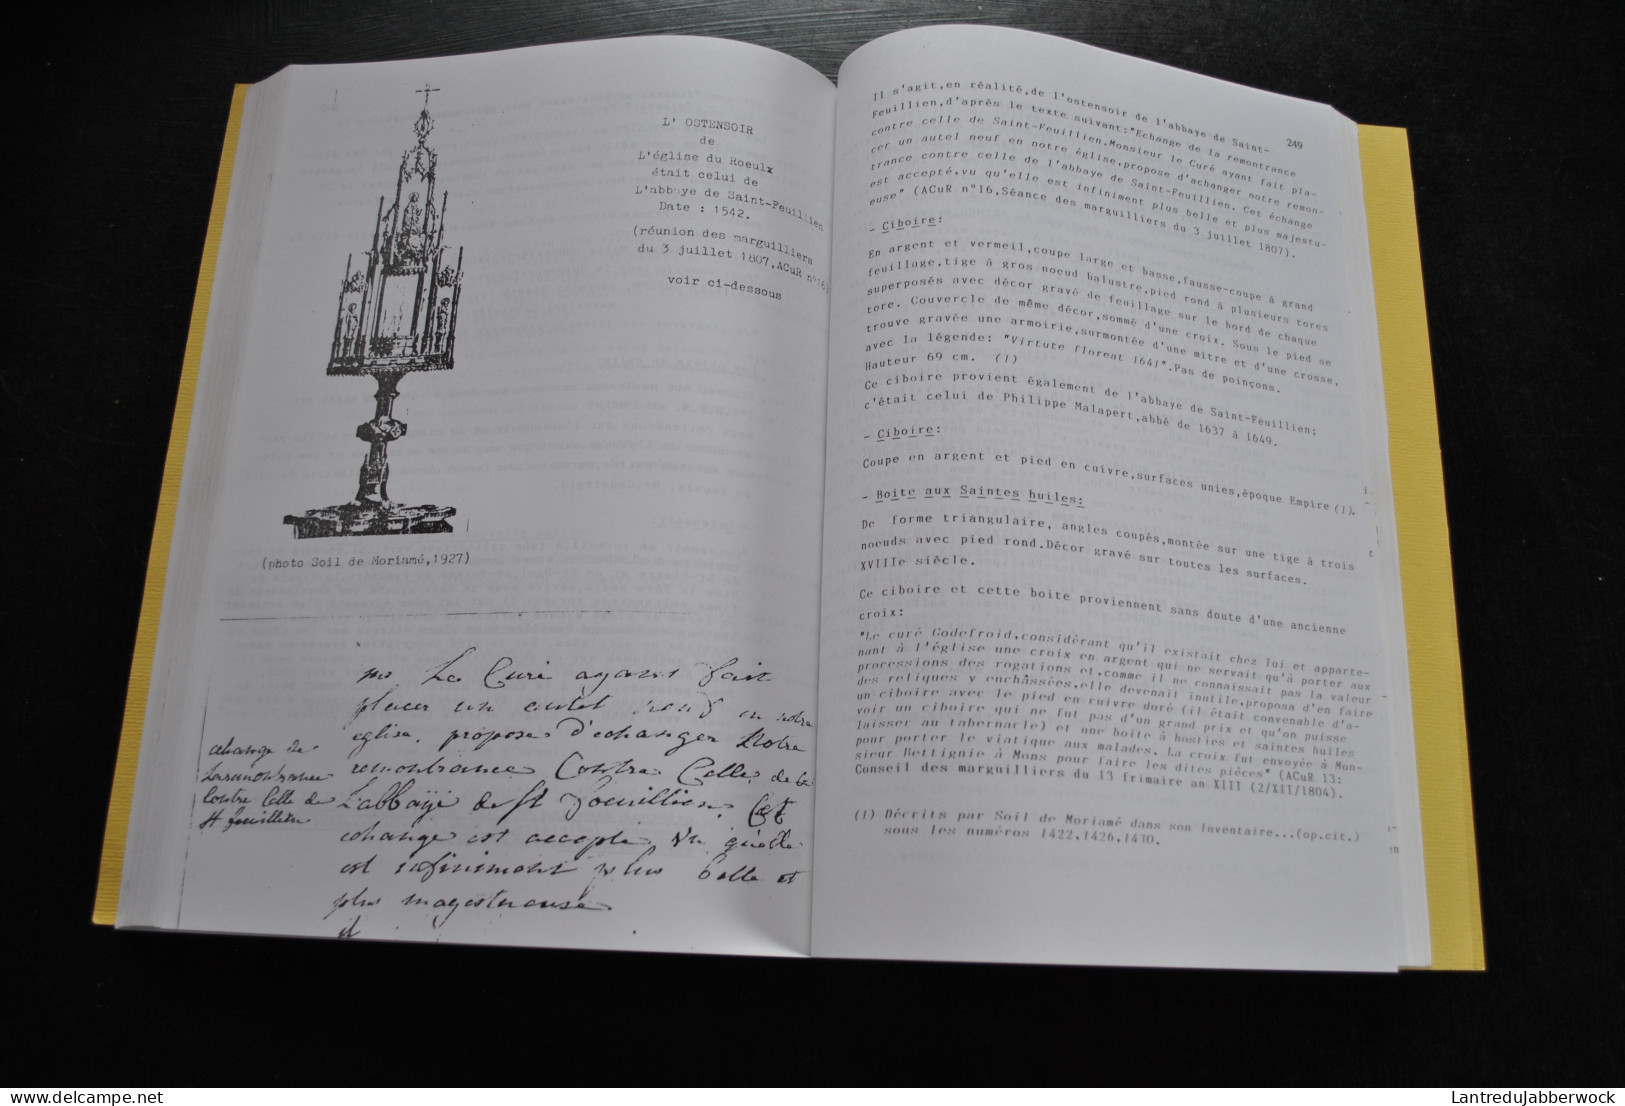 L' OSTENSOIR
de
L'église du Roeulx
était celui de
L'abbaye de Saint-Feuillien
Date : 1542.
(réunion des marguilliers
du 3 juillet 1807,ACuR n°16)
voir ci-dessous
(photo Soil de Moriamé,1927)
Le Curé ayant fait
placer un autel neuf en notre
église, propose d'échanger Notre
remontrance Contre Celle de
L'abbaÿe de St foeuillien. Cet
echange est accepté vu qu'elle
est infiniment plus belle et
plus magestueuse
il
echange de
La remontrance
Contre Celle de
St foeuillien
249
Il s'agit,en réalité,de l'ostensoir de l'abbaye de Saint-
Feuillien,d'après le texte suivant:"Echange de la remontrance
contre celle de Saint-Feuillien.Monsieur le Curé ayant fait pla-
cer un autel neuf en notre église,propose d'achanger notre remon-
trance contre celle de l'abbaye de Saint-Feuillien. Cet échange
est accepté,vu qu'elle est infiniment plus belle et plus majestu-
euse" (ACuR n°16,Séance des marguilliers du 3 juillet 1807).
- Ciboire:
En argent et vermeil,coupe large et basse,fausse-coupe à grand
feuillage,tige à gros noeud balustre,pied rond à plusieurs tores
superposés avec décor gravé de feuillage sur le bord de chaque
tore. Couvercle de même décor,sommé d'une croix. Sous le pied se
trouve gravée une armoirie,surmontée d'une mitre et d'une crosse,
avec la légende: "Virtute florent 1641".Pas de poinçons.
Hauteur 69 cm. (1)
Ce ciboire provient également de l'abbaye de Saint-Feuillien;
c'était celui de Philippe Malapert,abbé de 1637 à 1649.
- Ciboire:
Coupe en argent et pied en cuivre,surfaces unies,époque Empire (1).
- Boite aux Saintes huiles:
De forme triangulaire, angles coupés,montée sur une tige à trois
noeuds avec pied rond.Décor gravé sur toutes les surfaces.
XVIIIe siècle.
Ce ciboire et cette boite proviennent sans doute d'une ancienne
croix:
"Le curé Godefroid,considérant qu'il existait chez lui et apparte-
nant à l'église une croix en argent qui ne servait qu'à porter aux
processions des rogations et,comme il ne connaissait pas la valeur
des reliques y enchâssées,elle devenait inutile,proposa d'en faire
un ciboire avec le pied en cuivre doré (il était convenable d'a-
voir un ciboire qui ne fut pas d'un grand prix et qu'on puisse
laisser au tabernacle) et une boite à hosties et saintes huiles
pour porter le viatique aux malades. La croix fut envoyée à Mon-
sieur Bettignie à Mons pour faire les dites pièces" (ACuR 13:
Conseil des marguilliers du 13 frimaire an XIII (2/XII/1804).
(1) Décrits par Soil de Moriamé dans son Inventaire...(op.cit.)
sous les numéros 1422,1426,1430.
LantreduJabberwock